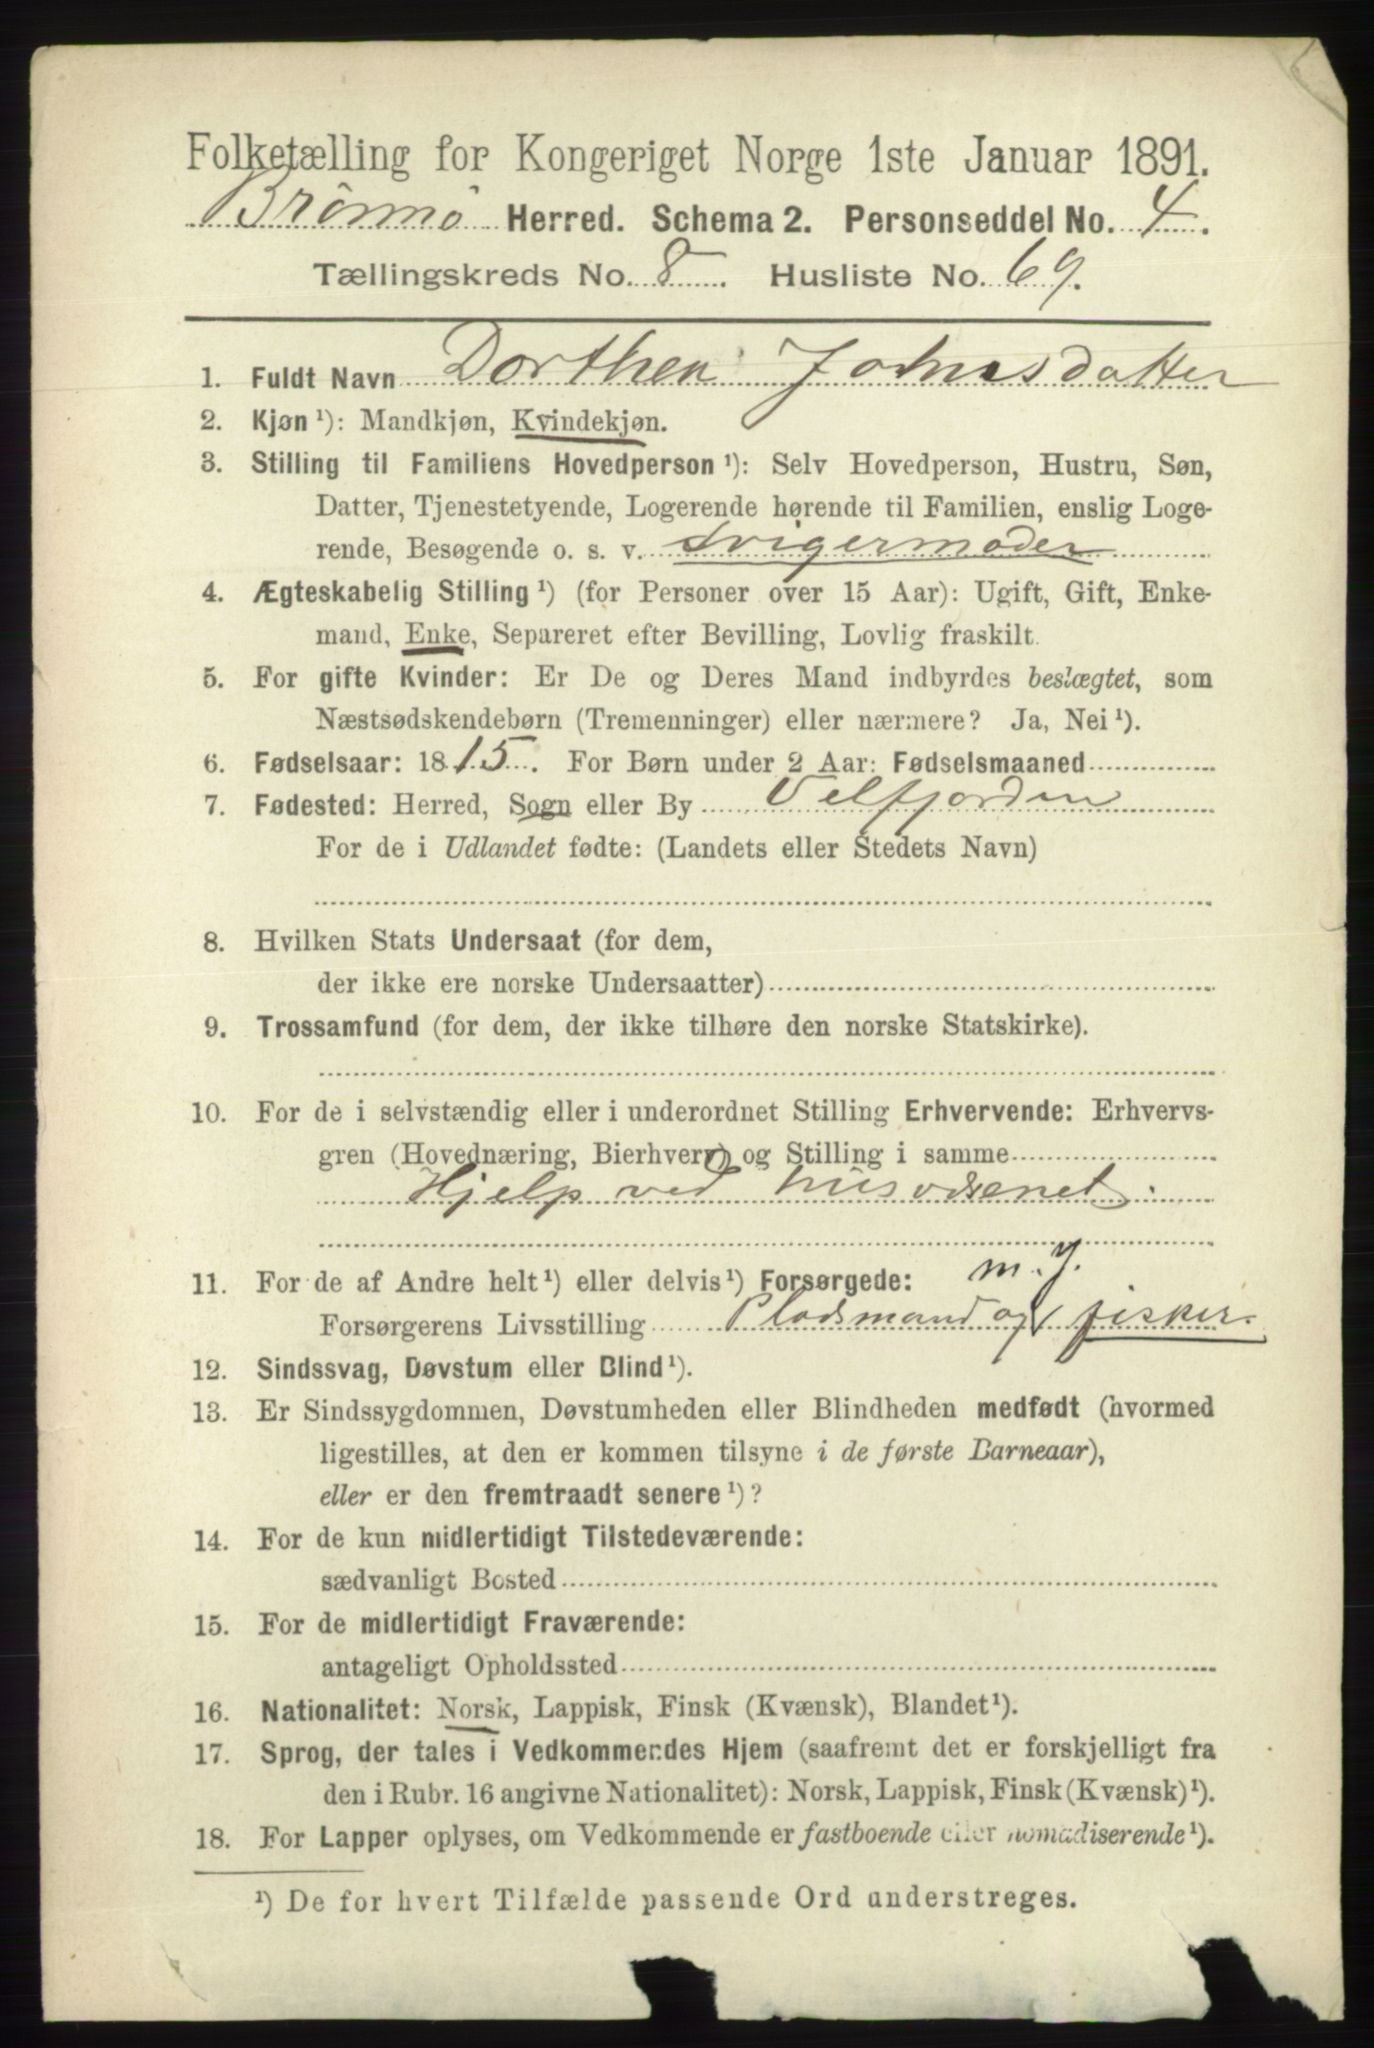 Folketælling for Kongeriget Norge 1ste Januar 1891.
Brönnö Herred. Schema 2. Personseddel No. 4.
Tællingskreds No. 8. Husliste No. 69.
1. Fuldt Navn Dorthea Johnsdatter
2. Kjøn ¹): Mandkjøn, Kvindekjøn.
3. Stilling til Familiens Hovedperson ¹): Selv Hovedperson, Hustru, Søn,
Datter, Tjenestetyende, Logerende hørende til Familien, enslig Loge-
rende, Besøgende o. s. v. Svigermoder
4. Ægteskabelig Stilling ¹) (for Personer over 15 Aar): Ugift, Gift, Enke-
mand, Enke, Separeret efter Bevilling, Lovlig fraskilt.
5. For gifte Kvinder: Er De og Deres Mand indbyrdes beslægtet, som
Næstsødskendebørn (Tremenninger) eller nærmere? Ja, Nei ¹).
6. Fødselsaar: 1815. For Børn under 2 Aar: Fødselsmaaned
7. Fødested: Herred, Sogn eller By Velfjorden
For de i Udlandet fødte: (Landets eller Stedets Navn)
8. Hvilken Stats Undersaat (for dem,
der ikke ere norske Undersaatter)
9. Trossamfund (for dem, der ikke tilhøre den norske Statskirke).
10. For de i selvstændig eller i underordnet Stilling Erhvervende: Erhvervs-
gren (Hovednæring, Bierhverv) og Stilling i samme
Hjelp ved husvæsenet.
11. For de af Andre helt ¹) eller delvis ¹) Forsørgede: m. J.
Forsørgerens Livsstilling Pladsmand og fisker.
12. Sindssvag, Døvstum eller Blind ¹).
13. Er Sindssygdommen, Døvstumheden eller Blindheden medfødt (hvormed
ligestilles, at den er kommen tilsyne i de første Barneaar),
eller er den fremtraadt senere ¹)?
14. For de kun midlertidigt Tilstedeværende:
sædvanligt Bosted
15. For de midlertidigt Fraværende:
antageligt Opholdssted
16. Nationalitet: Norsk, Lappisk, Finsk (Kvænsk), Blandet ¹).
17. Sprog, der tales i Vedkommendes Hjem (saafremt det er forskjelligt fra
den i Rubr. 16 angivne Nationalitet): Norsk, Lappisk, Finsk (Kvænsk) ¹).
18. For Lapper oplyses, om Vedkommende er fastboende eller nomadiserende ¹).
¹) De for hvert Tilfælde passende Ord understreges.